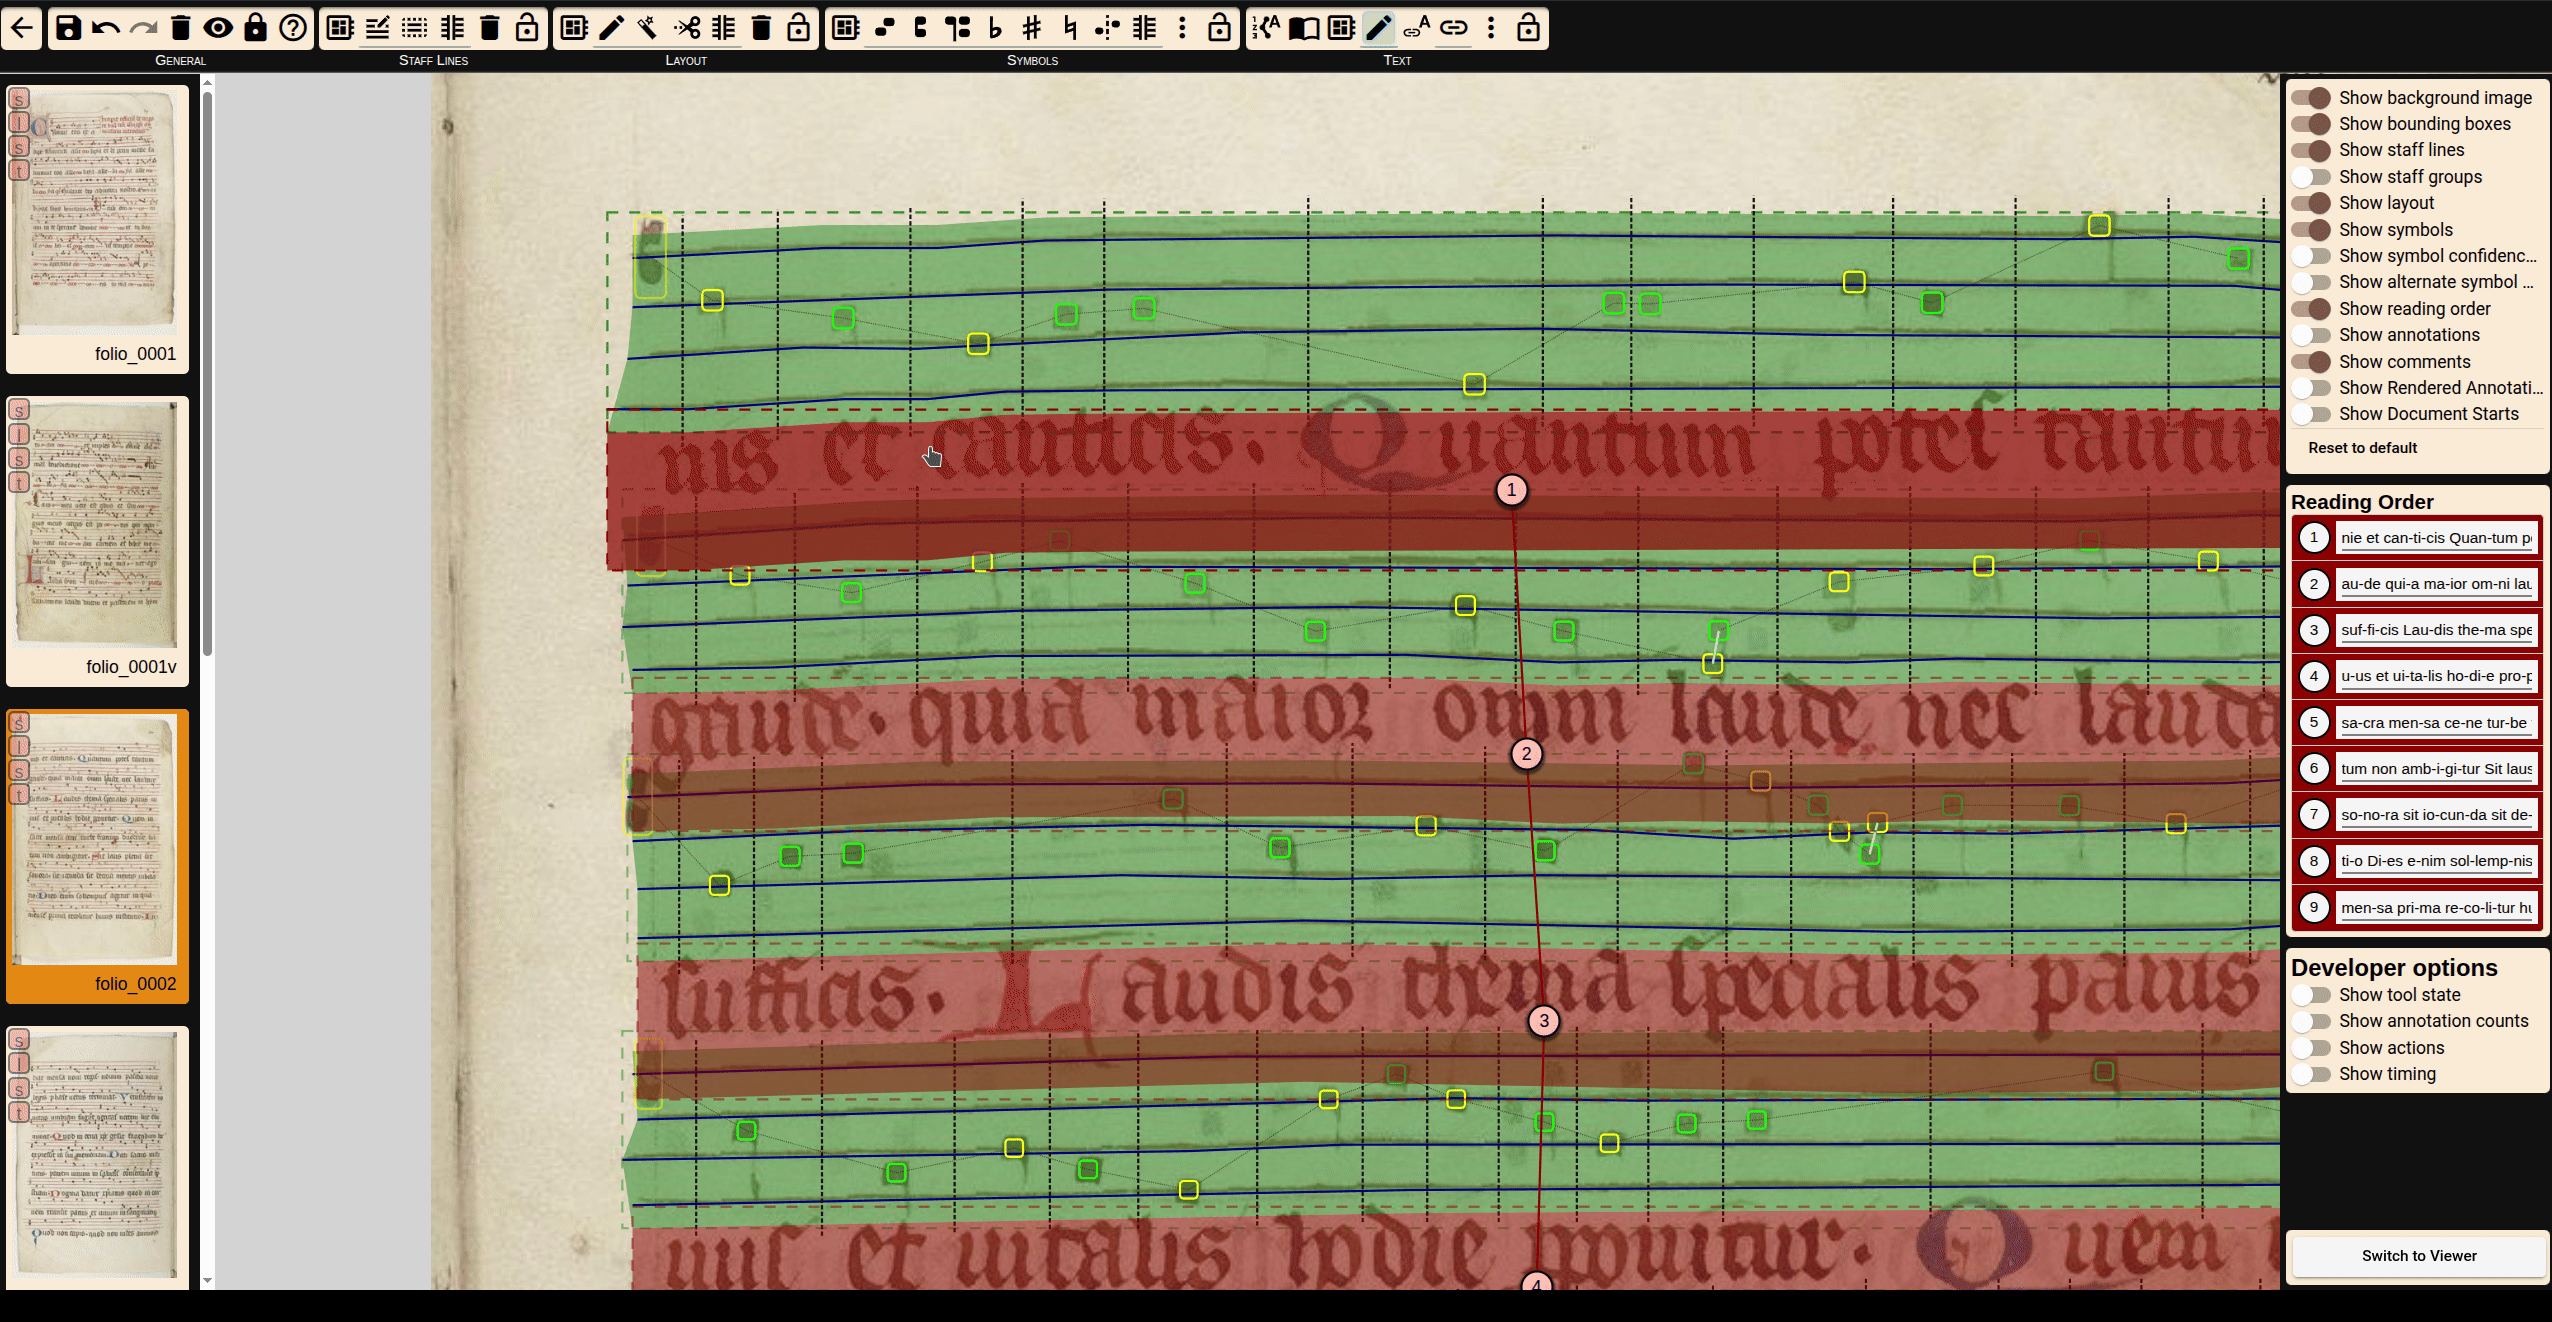 General
Staff Lines
Layout
Symbols
Text
folio_0001
folio_0001v
folio_0002
nis et canticis. Quantum potes tantum
gaude. quia maior omni laude nec lauda
sufficis. Laudis thema specialis panis
uus et uitalis hodie ponitur. Quem
1
2
3
4
Show background image
Show bounding boxes
Show staff lines
Show staff groups
Show layout
Show symbols
Show symbol confidenc...
Show alternate symbol ...
Show reading order
Show annotations
Show comments
Show Rendered Annotati...
Show Document Starts
Reset to default
Reading Order
1 nie et can-ti-cis Quan-tum p
2 au-de qui-a ma-ior om-ni lau
3 suf-fi-cis Lau-dis the-ma spe
4 u-us et ui-ta-lis ho-di-e pro-p
5 sa-cra men-sa ce-ne tur-be
6 tum non amb-i-gi-tur Sit laus
7 so-no-ra sit io-cun-da sit de-
8 ti-o Di-es e-nim sol-lemp-nis
9 men-sa pri-ma re-co-li-tur hu
Developer options
Show tool state
Show annotation counts
Show actions
Show timing
Switch to Viewer